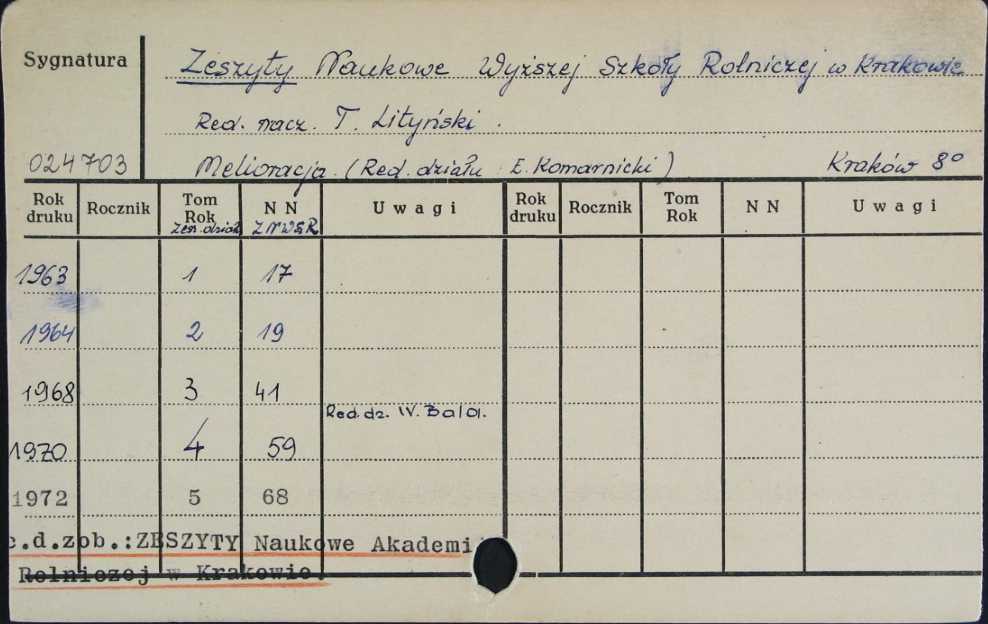 Sygnatura
Zeszyty Naukowe Wyższej Szkoły Rolniczej w Krakowie
Red. nacz. T. Lityński.
024703 Melioracja. (Red. działu : E. Komarnicki) Kraków 8°
Rok druku Rocznik Tom Rok Zesz. dział NN ZNWSR Uwagi Rok druku Rocznik Tom Rok NN Uwagi
1963 1 17
1964 2 19
1968 3 41
Red. dz. W. Bala.
1970 4 59
1972 5 68
c.d.zob.:ZESZYTY Naukowe Akademi
Rolniczej w Krakowie.